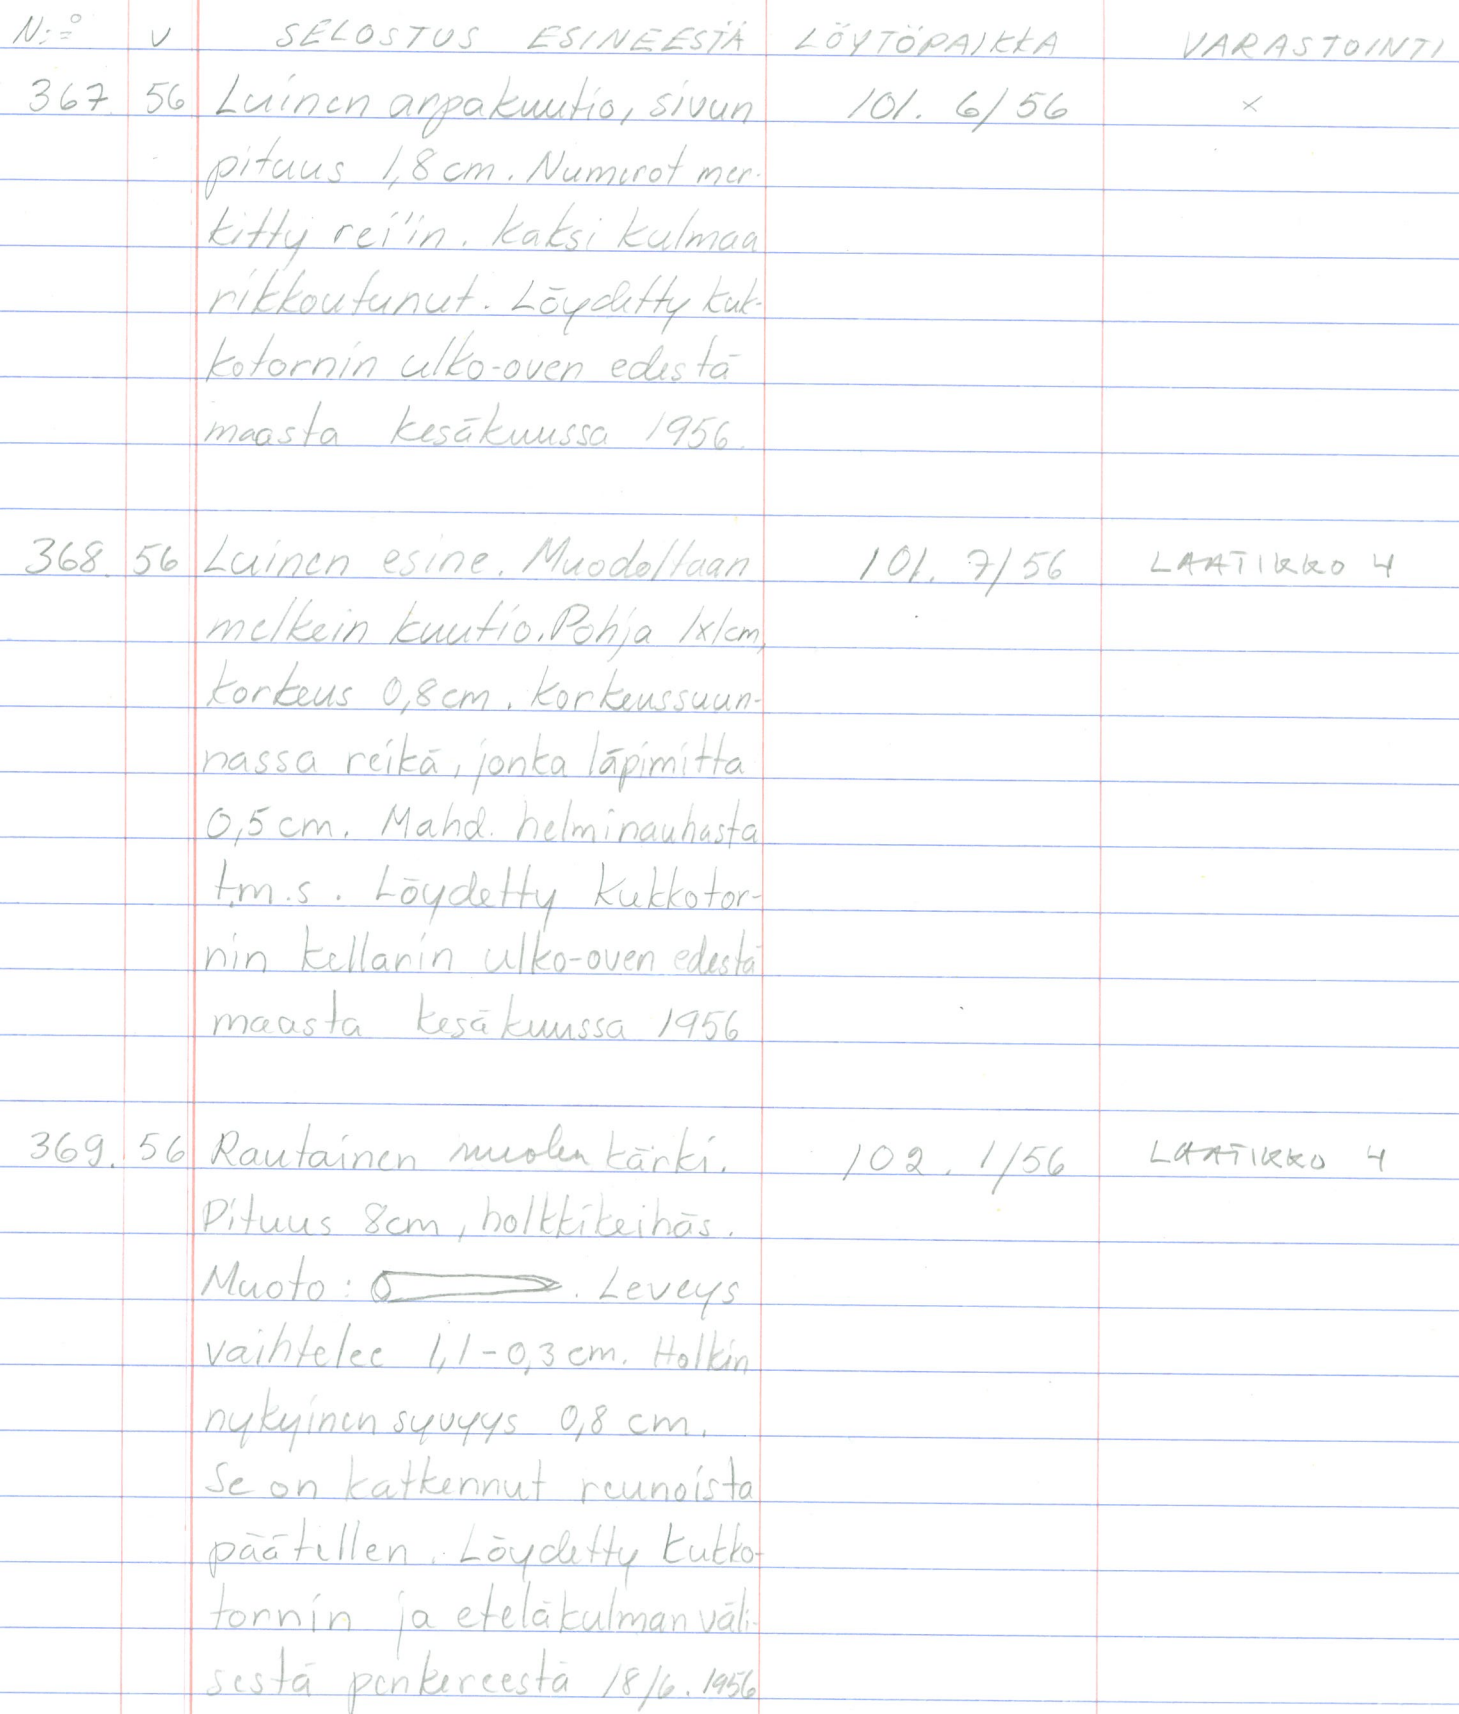 N:o V SELOSTUS ESINEESTÄ LÖYTÖPAIKKA VARASTOINTI
367. 56 Luinen arpakuutio, sivun 101. 6/56 x
pituus 1,8 cm. Numerot mer-
kitty rei'in. Kaksi kulmaa
rikkoutunut. Löydetty Kuk-
kotornin ulko-oven edestä
maasta kesäkuussa 1956.
368. 56 Luinen esine. Muodoltaan 101. 7/56 LAATIKKO 4
melkein kuutio. Pohja 1x1cm,
korkeus 0,8 cm. Korkeussuun-
nassa reikä, jonka läpimitta
0,5 cm. Mahd. helminauhasta
t.m.s. Löydetty Kukkotor-
nin kellarin ulko-oven edestä
maasta kesäkuussa 1956
369. 56 Rautainen nuolen kärki. 102. 1/56 LAATIKKO 4
Pituus 8cm, holkkikeihäs.
Muoto: . Leveys
vaihtelee 1,1-0,3 cm. Holkin
nykyinen syvyys 0,8 cm.
Se on katkennut reunoista
päätellen. Löydetty Kukko-
tornin ja eteläkulman väli-
sestä penkereestä 18/6. 1956